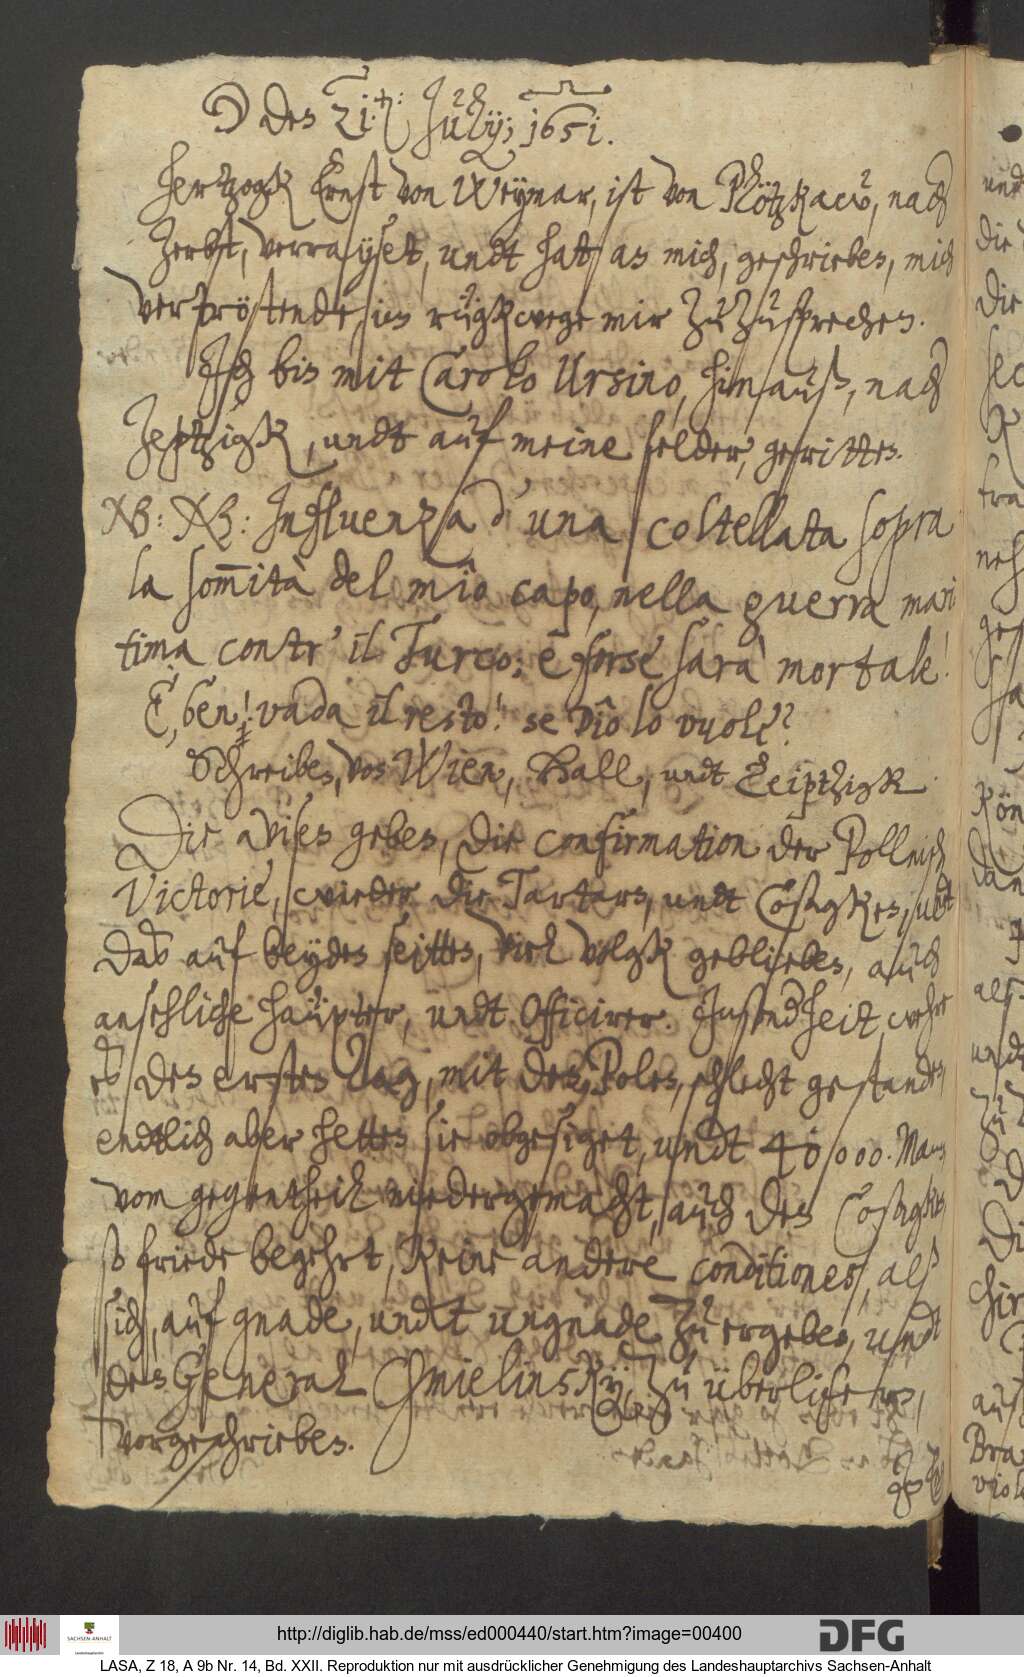 ☽ den 21.ten: Julÿ; 1651.
Hertzogk Ernst von Weÿmar, ist von Plötzkaw, nach
Zerbst, verrayset, undt hat an mich, geschrieben, mich
vertröstende, im rügkwege mir zuzusprechen.
Jch bin mit Carolo Ursino, hinauß, nach
Zeptzigk, undt auf meine felder, geritten.
NB: NB: Influenza d'una coltellata sopra
la som̅ità del mio capo, nella guerra mari
tima contr' il Turco; e forse sarà mortale!
E, ben! vada il resto! se Dio lo vuole?
Schreiben, von Wien, Hall, und Leiptzigk
Die avisen geben, die confirmation der Pollnisch
Victorie, wieder die Tartarn, undt Cosagken, undt
daß auf beyden seitten, viel volgk geblieben, auch
ansehliche haüpter, undt Officirer. Jnsondheit, wehre
es den ersten Tag, mit den Polen, schlecht gestanden,
endtlich aber hetten sie obgesieget, undt 40000. Mann
vom gegentheil niedergemacht, auch den Cosagken,
so friede begehrt, keine andere conditiones, alß
sich, auf gnade, undt ungnade zu ergeben, undt
den General Chmielinsky, zu überliefern,
vorgeschrieben.
http://diglib.hab.de/mss/ed000440/start.htm?image=00400
SACHSEN-ANHALT
Landeshauptarchiv
DFG
LASA, Z 18, A 9b Nr. 14, Bd. XXII. Reproduktion nur mit ausdrücklicher Genehmigung des Landeshauptarchivs Sachsen-Anhalt